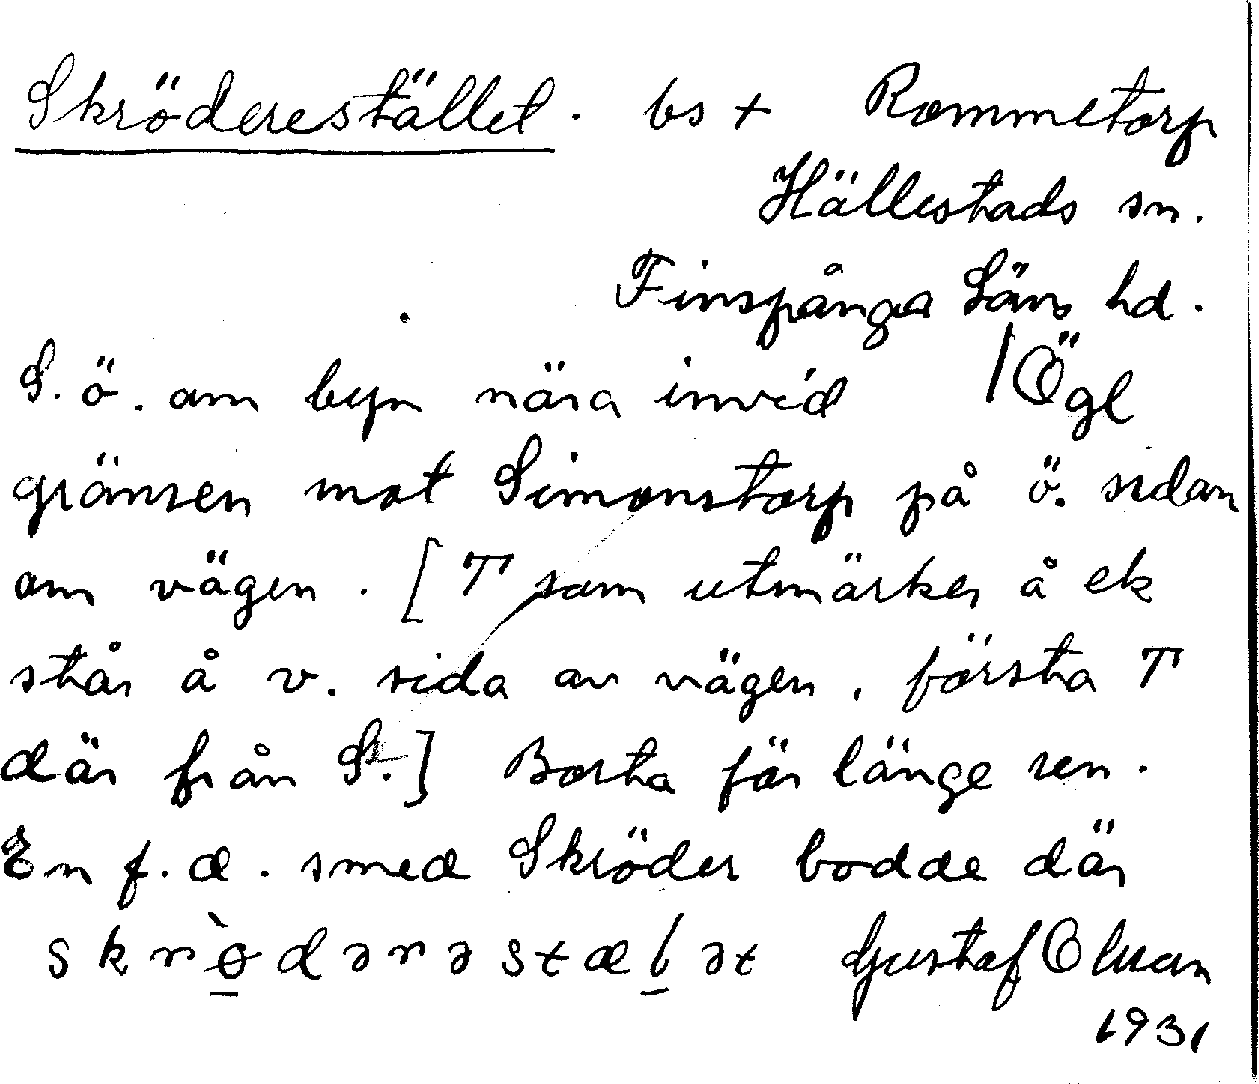 Skröderestället. bs + Rommetorp
Hällestads sn.
Finspånga Läns hd.
S. ö. om byn nära invid /Ögl
gränsen mot Simonstorp på ö. sidan
om vägen. [T som utmärker å ek
står å v. sida av vägen, första T
där från S.] Borta för länge sen.
En f.d. smed Skröder bodde där
skrò̱dərəstæḻət Gustaf Olsson
1931